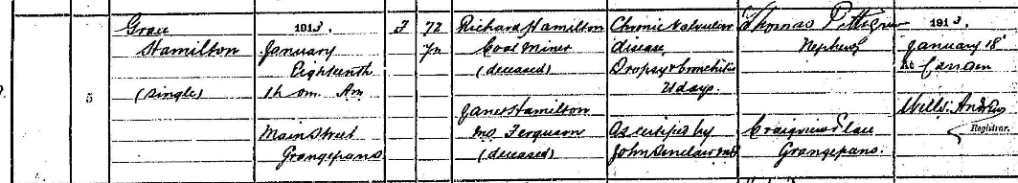 5
Grace
Hamilton
(single)
1913.
January
Eighteenth
1h 0m. AM
Main Street
Grangepans
F
72
Yrs
Richard Hamilton
Coal Miner
(deceased)
Janet Hamilton
M.S. Ferguson
(deceased)
Chronic Valvular
disease
Dropsy & bronchitis
21 days.
As certified by
John Sinclair MB
Thomas Pettigrew
Nephew
Craigview Place
Grangepans.
1913.
January 18th
At Carriden
Andrew
Registrar.